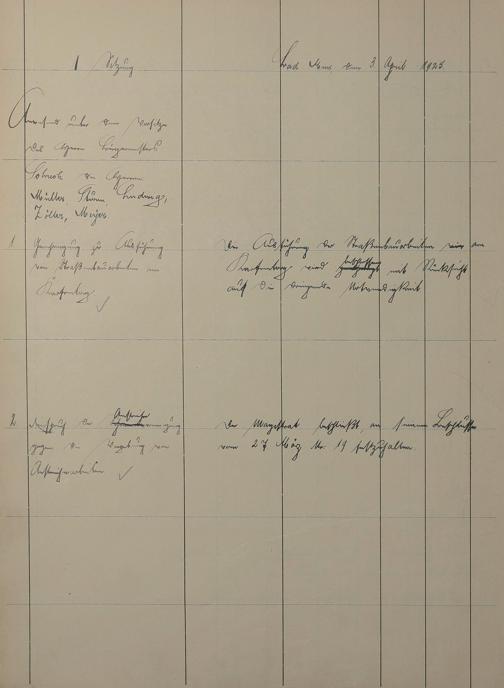 1 Sitzung
Bad Ems den 3. April 1925
Anwesend unter dem Vorsitze
des Herrn Bürgermeisters
die Herren
Müller, Sturm, Linding,
Zöller, Meyer.
1 Genehmigung zur Ausführung
von Straßenbauarbeiten am
Die Ausführung der Straßenbauarbeiten wie am
wird mit Rücksicht
auf die dringende Notwendigkeit
2 Einspruch der
gegen die Vergebung von
Anstreicherarbeiten
Der Magistrat beschließt an seinem Beschlusse
vom 27 März No. 19 festzuhalten.